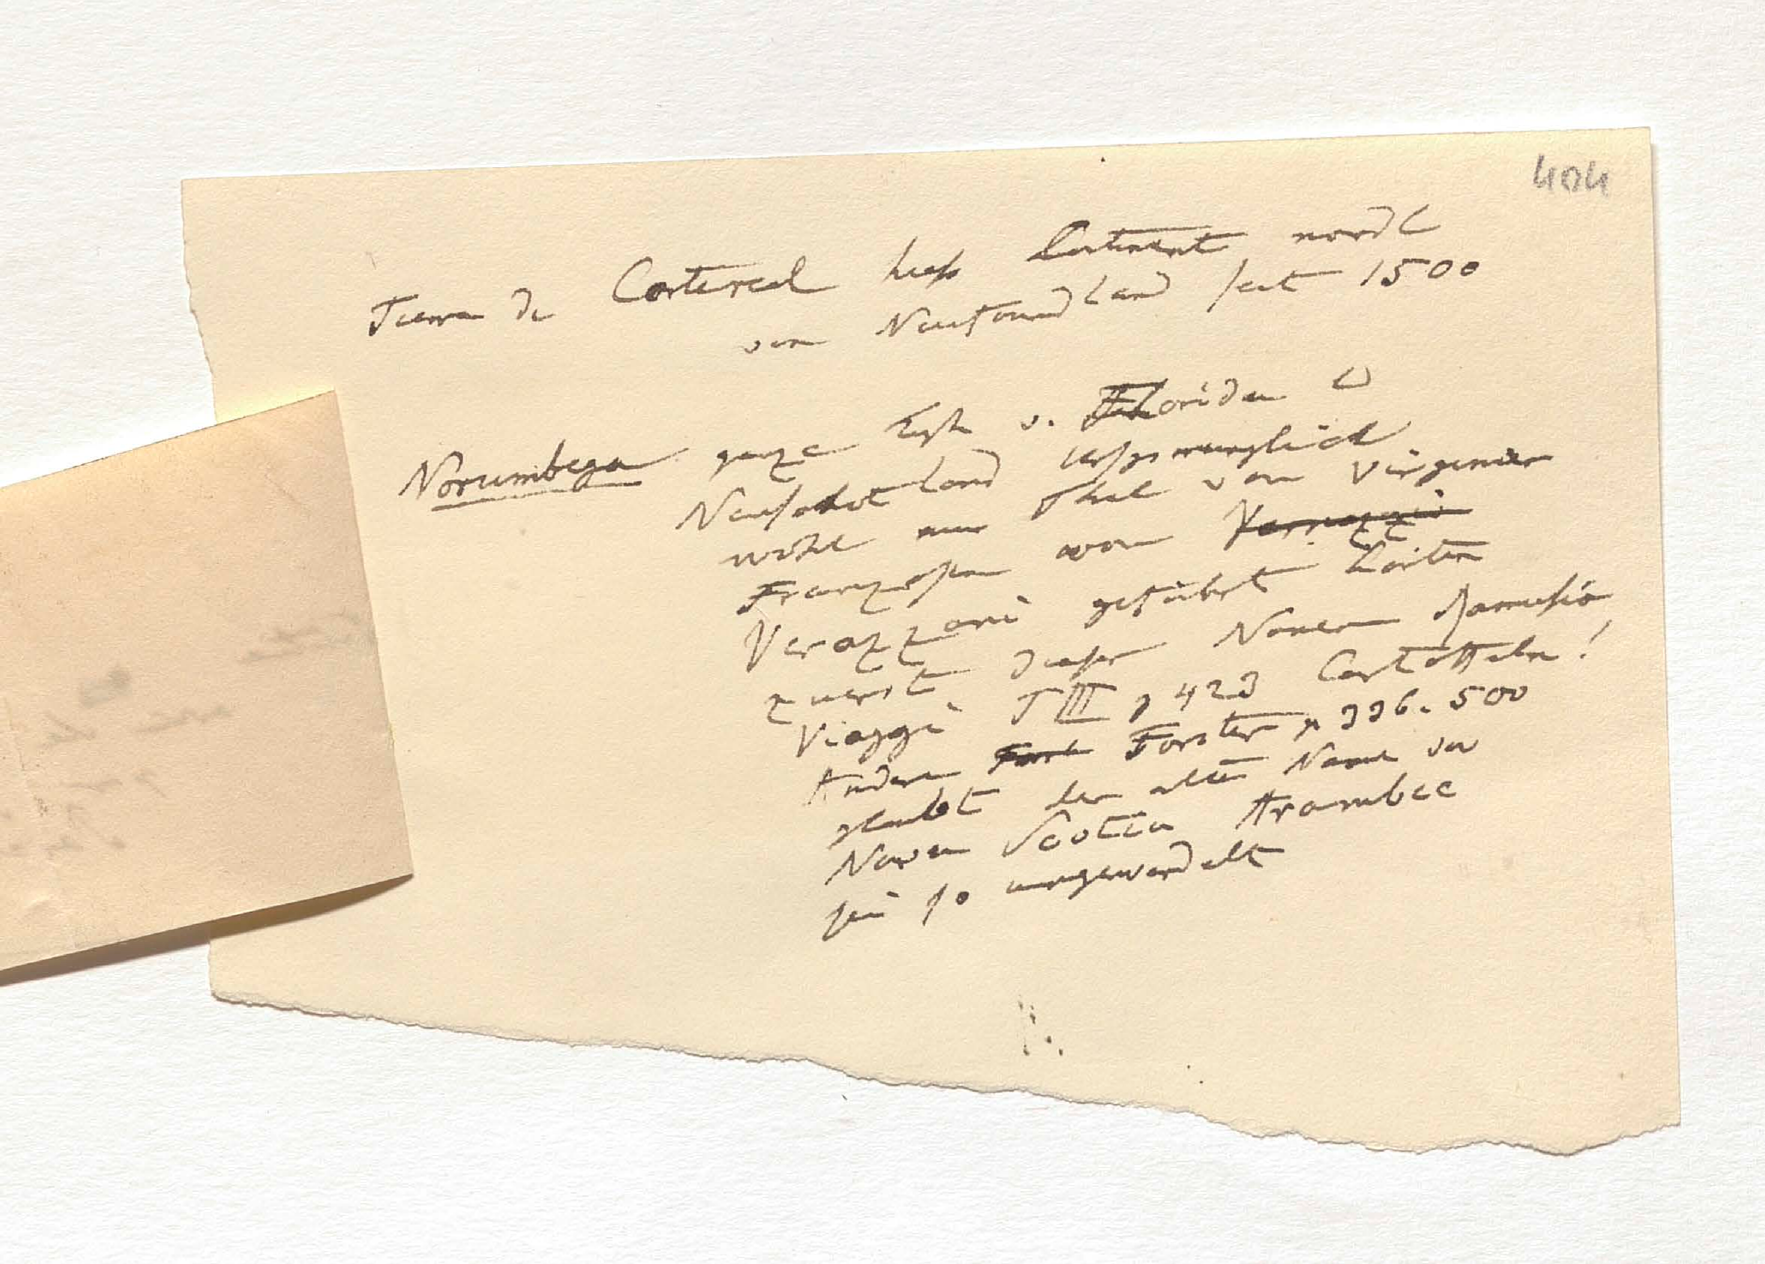 404
Tierra de Cortereal hiess Continent nordl
von Neufoundland seit 1500
Norumbega ganze v. Florida
Neuschotland ursprünglich
wohl nur Theil von Virginien
Franzosen von Verrazzi
Verazzani geführt hörten
zuerst diesen Namen Ramusio
Viaggi T III p 423 Cortotteln!
Andere Forst Forster p 336. 500
glaubt der alte Name von
Nova Scotia Arambec
sei so umgewandelt